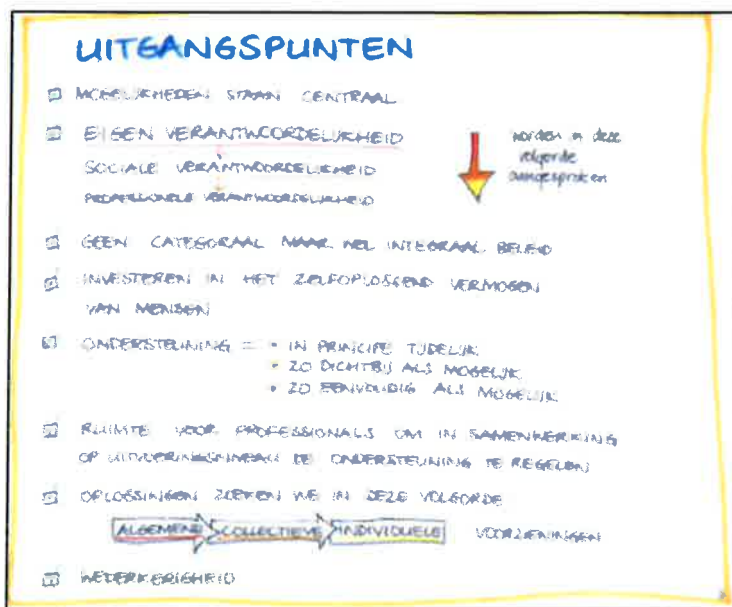 UITGANGSPUNTEN
MOGELIJKHEDEN STAAN CENTRAAL
EIGEN VERANTWOORDELIJKHEID
SOCIALE VERANTWOORDELIJKHEID
PROFESSIONELE VERANTWOORDELIJKHEID
worden in deze
volgorde
aangesproken
GEEN CATEGORAAL MAAR WEL INTEGRAAL BELEID
INVESTEREN IN HET ZELFOPLOSSEND VERMOGEN
VAN MENSEN
ONDERSTEUNING = • IN PRINCIPE TIJDELIJK
• ZO DICHTBIJ ALS MOGELIJK
• ZO EENVOUDIG ALS MOGELIJK
RUIMTE VOOR PROFESSIONALS OM IN SAMENWERKING
OP UITVOERINGSNIVEAU DE ONDERSTEUNING TE REGELEN
OPLOSSINGEN ZOEKEN WE IN DEZE VOLGORDE
ALGEMENE COLLECTIEVE INDIVIDUELE VOORZIENINGEN
WEDERKERIGHEID